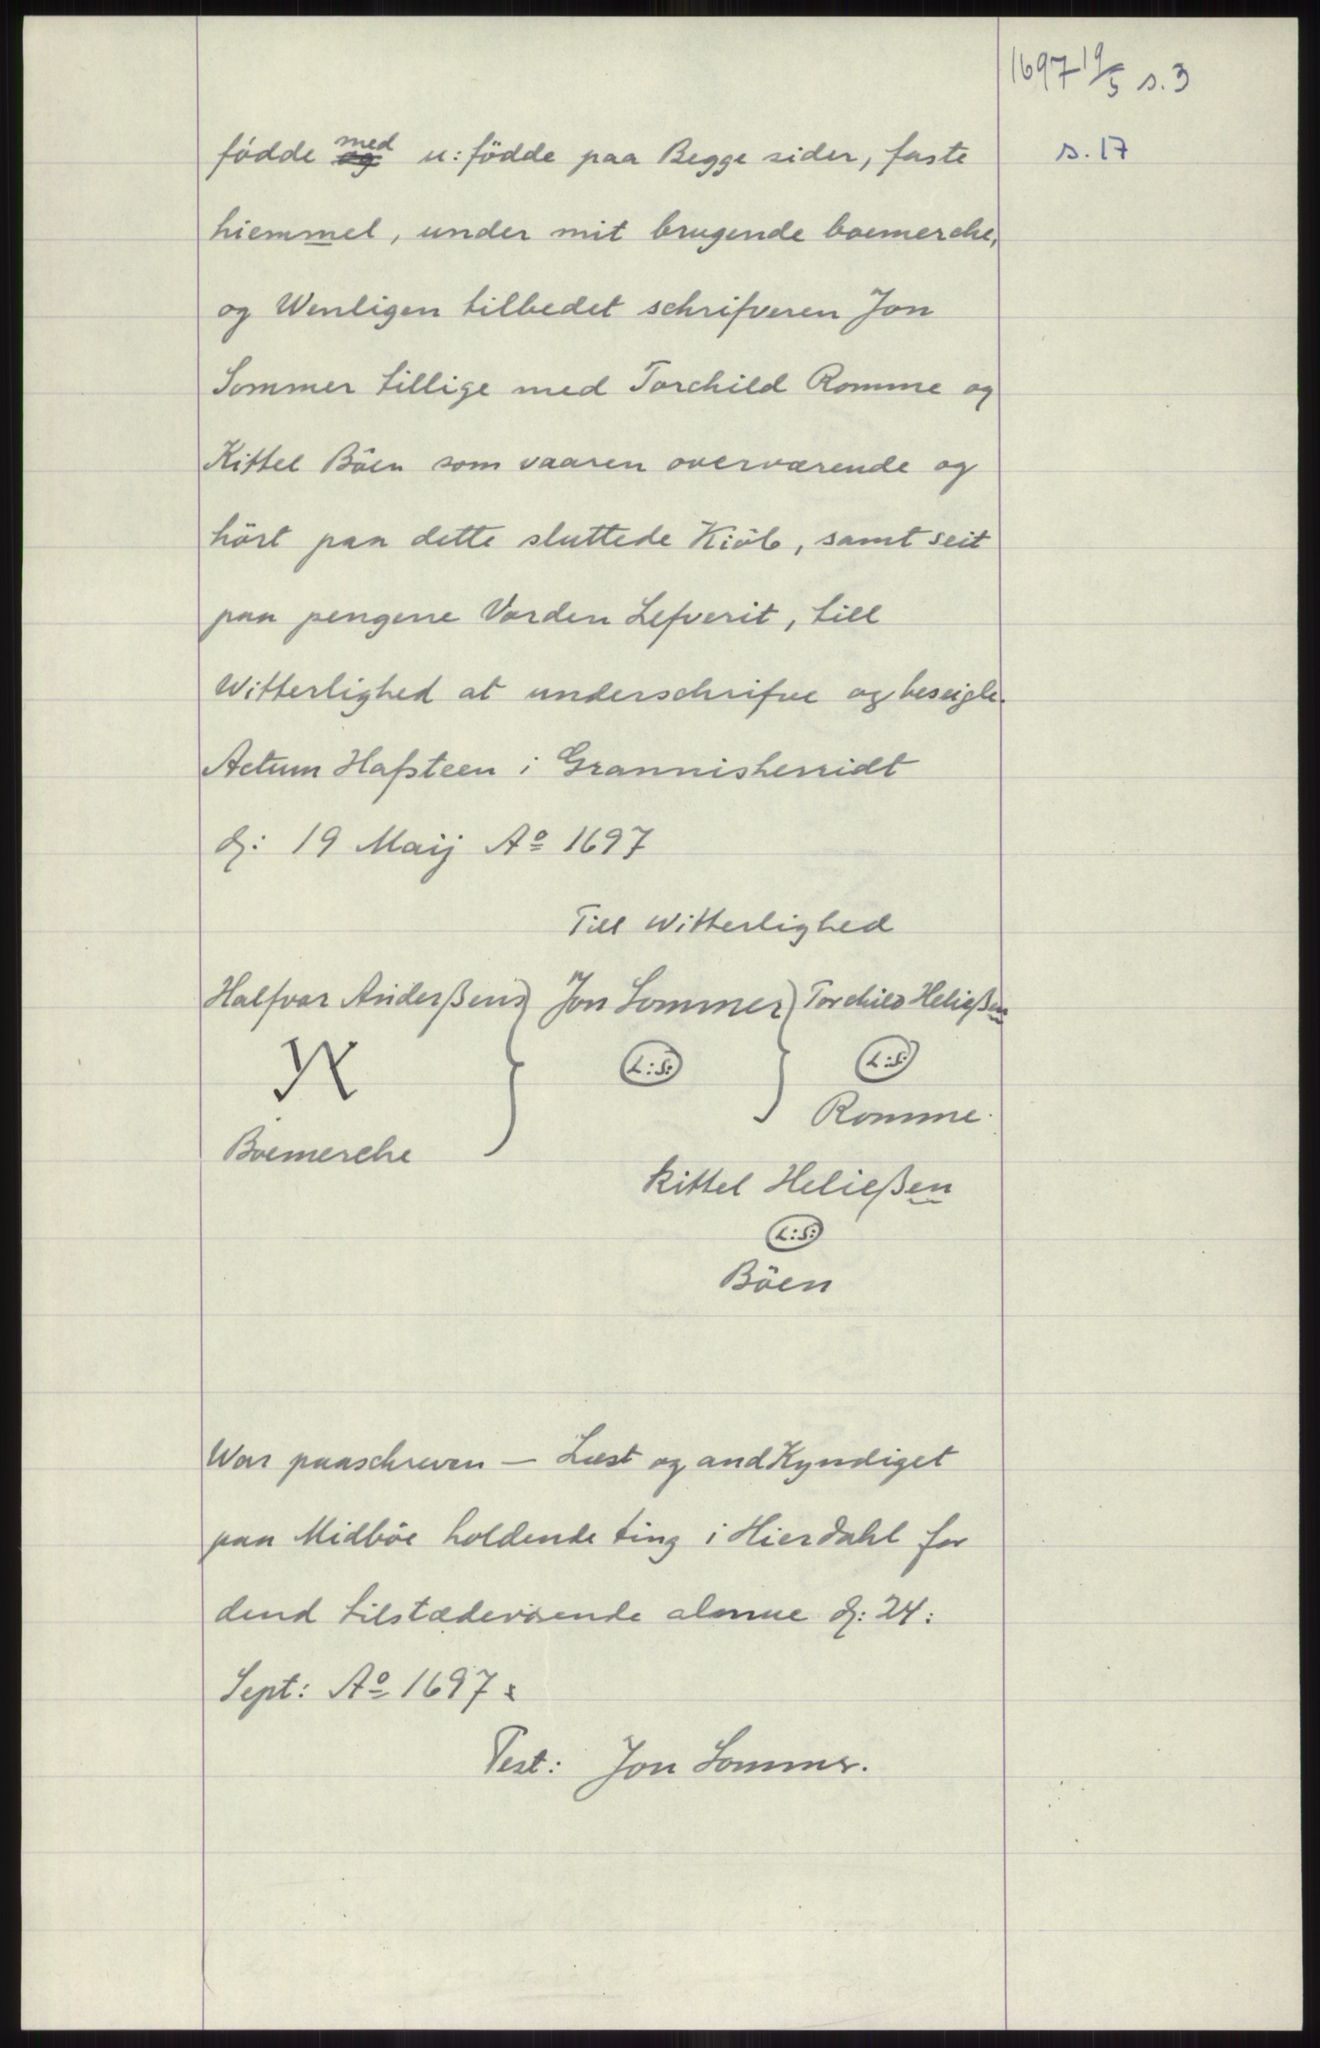 1697 19/5 s.3
s. 17
födde med u: födde paa Begge sider, faste
hiemmel, under mit brugende boemerche,
og Wenligen tilbedet schrifveren Jon
Sommer tillige med Torchild Romme og
Kittel Böen som vaaren overværende og
hört paa dette sluttede Kiöb, samt seit
paa pengene Vorden Lefverit, till
Witterlighed at underschrifve og beseigle.
Actum Hafsteen i Grannisherridt
d: 19 Maij Ao 1697
Till Witterlighed
Halfvor Anderßens Jon Sommer Torchild Heließen
L:S: L:S:
Romme
Boemerche
Kittel Heließen
L:S:
Böen
War paaschreven – Læst og andKyndiget
paa Midböe holdende ting i Hierdahl for
dend tilstædeværende almue d: 24:
Sept: Ao 1697:
Test: Jon Sommer.